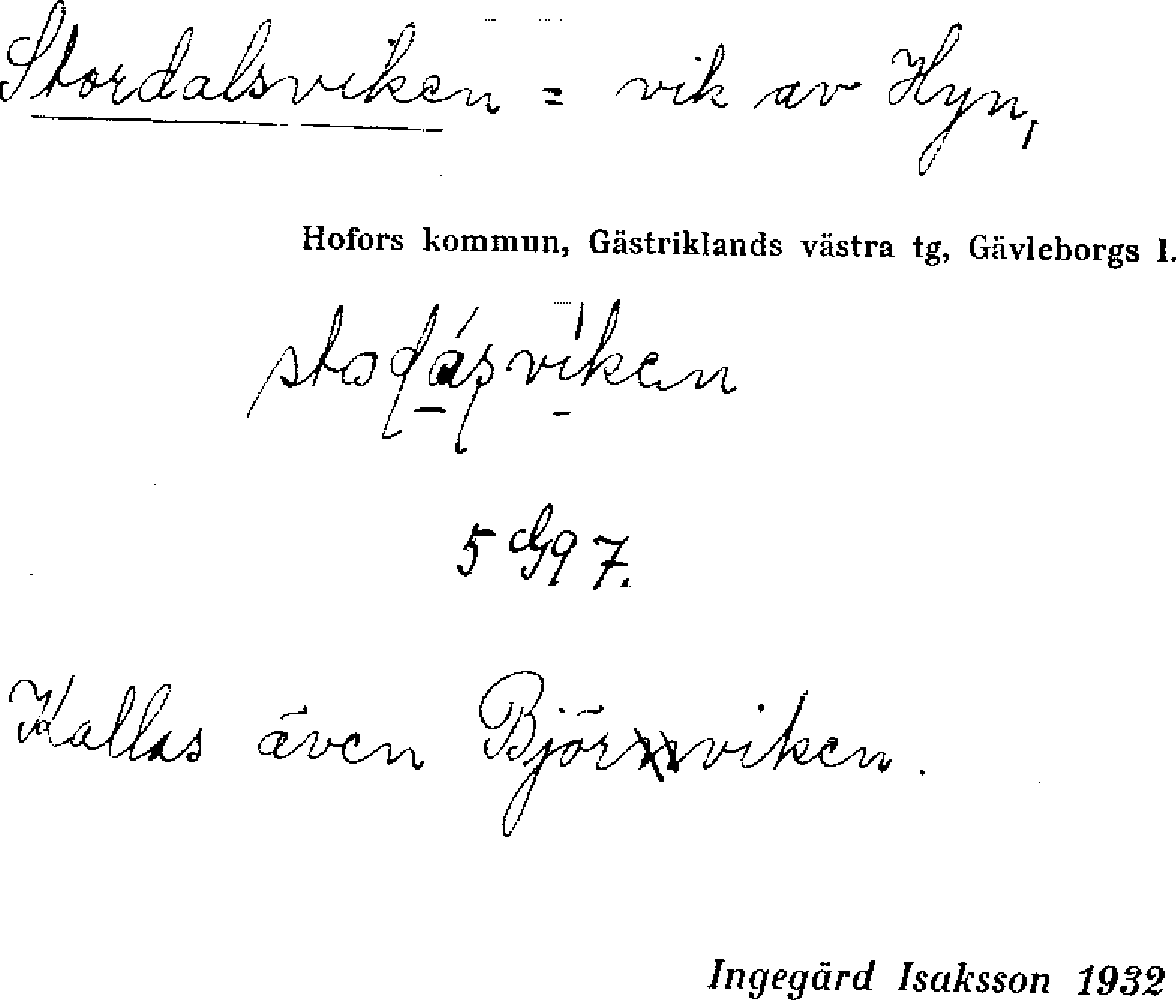 Stordalsviken = vik av Hyn,
Hofors kommun, Gästriklands västra tg, Gävleborgs l.
Kallas även Björnviken.
Ingegärd Isaksson 1932